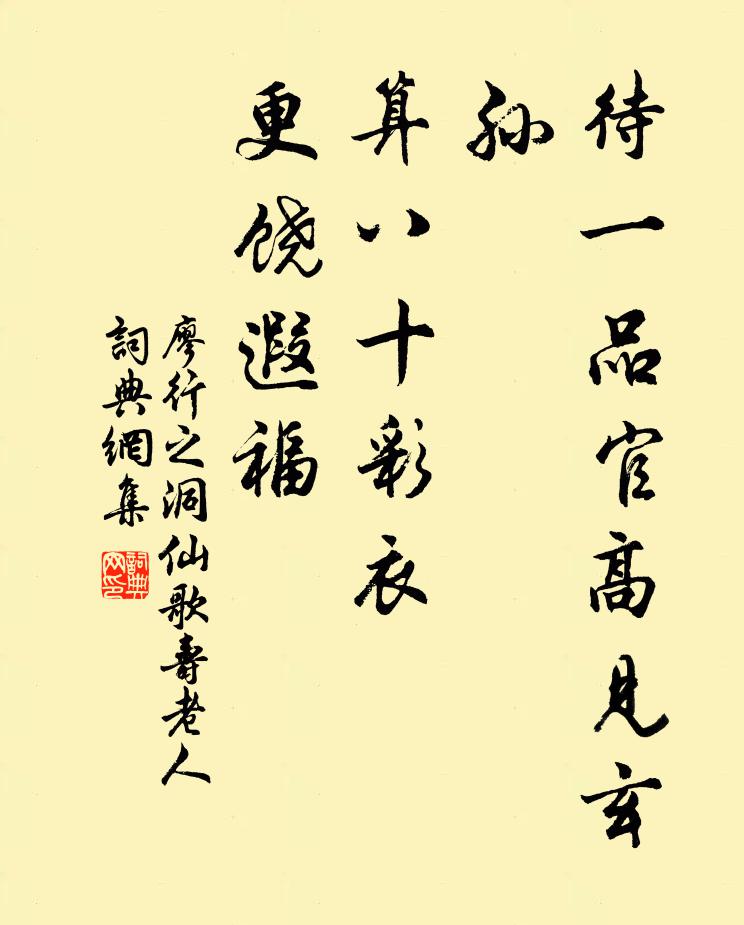 待一品官高見玄
孙
算八十彩衣
更饶遐福
廖行之洞仙歌壽老人
詞典網集
詞典网印